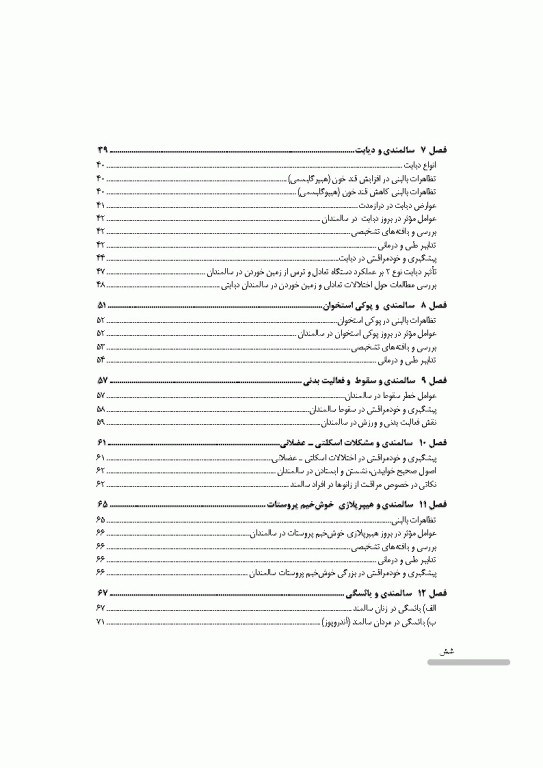 فصل ۷ سالمندی و دیابت ۳۹
انواع دیابت ۴۰
تظاهرات بالینی در افزایش قند خون (هیپرگلیسمی) ۴۰
تظاهرات بالینی کاهش قند خون (هیپوگلیسمی) ۴۰
عوارض دیابت در درازمدت ۴۱
عوامل مؤثر در بروز دیابت در سالمندان ۴۲
بررسی و یافته‌های تشخیصی ۴۲
تدابیر طبی و درمانی ۴۲
پیشگیری و خودمراقبتی در دیابت ۴۴
تأثیر دیابت نوع ۲ بر عملکرد دستگاه تعادل و ترس از زمین خوردن در سالمندان ۴۷
بررسی مطالعات حول اختلالات تعادلی و زمین خوردن در سالمندان دیابتی ۴۸
فصل ۸ سالمندی و پوکی استخوان ۵۱
تظاهرات بالینی در پوکی استخوان ۵۲
عوامل مؤثر در بروز پوکی استخوان در سالمندان ۵۲
بررسی و یافته‌های تشخیصی ۵۳
تدابیر طبی و درمانی ۵۴
فصل ۹ سالمندی و سقوط و فعالیت بدنی ۵۷
عوامل خطر سقوط در سالمندان ۵۷
پیشگیری و خودمراقبتی در سقوط سالمندان ۵۸
نقش فعالیت بدنی و ورزش در سالمندان ۵۹
فصل ۱۰ سالمندی و مشکلات اسکلتی ـ عضلانی ۶۱
پیشگیری و خودمراقبتی در اختلالات اسکلتی ـ عضلانی ۶۱
اصول صحیح خوابیدن، نشستن و ایستادن در سالمندان ۶۲
نکاتی در خصوص مراقبت از زانوها در افراد سالمند ۶۲
فصل ۱۱ سالمندی و هیپرپلازی خوش‌خیم پروستات ۶۵
تظاهرات بالینی ۶۵
عوامل مؤثر در بروز هیپرپلازی خوش‌خیم پروستات در سالمندان ۶۶
بررسی و یافته‌های تشخیصی ۶۶
تدابیر طبی و درمانی ۶۶
پیشگیری و خودمراقبتی در بزرگی خوش‌خیم پروستات سالمندان ۶۶
فصل ۱۲ سالمندی و یائسگی ۶۷
الف) یائسگی در زنان سالمند ۶۷
ب) یائسگی در مردان سالمند (آندروپوز) ۷۱
شش